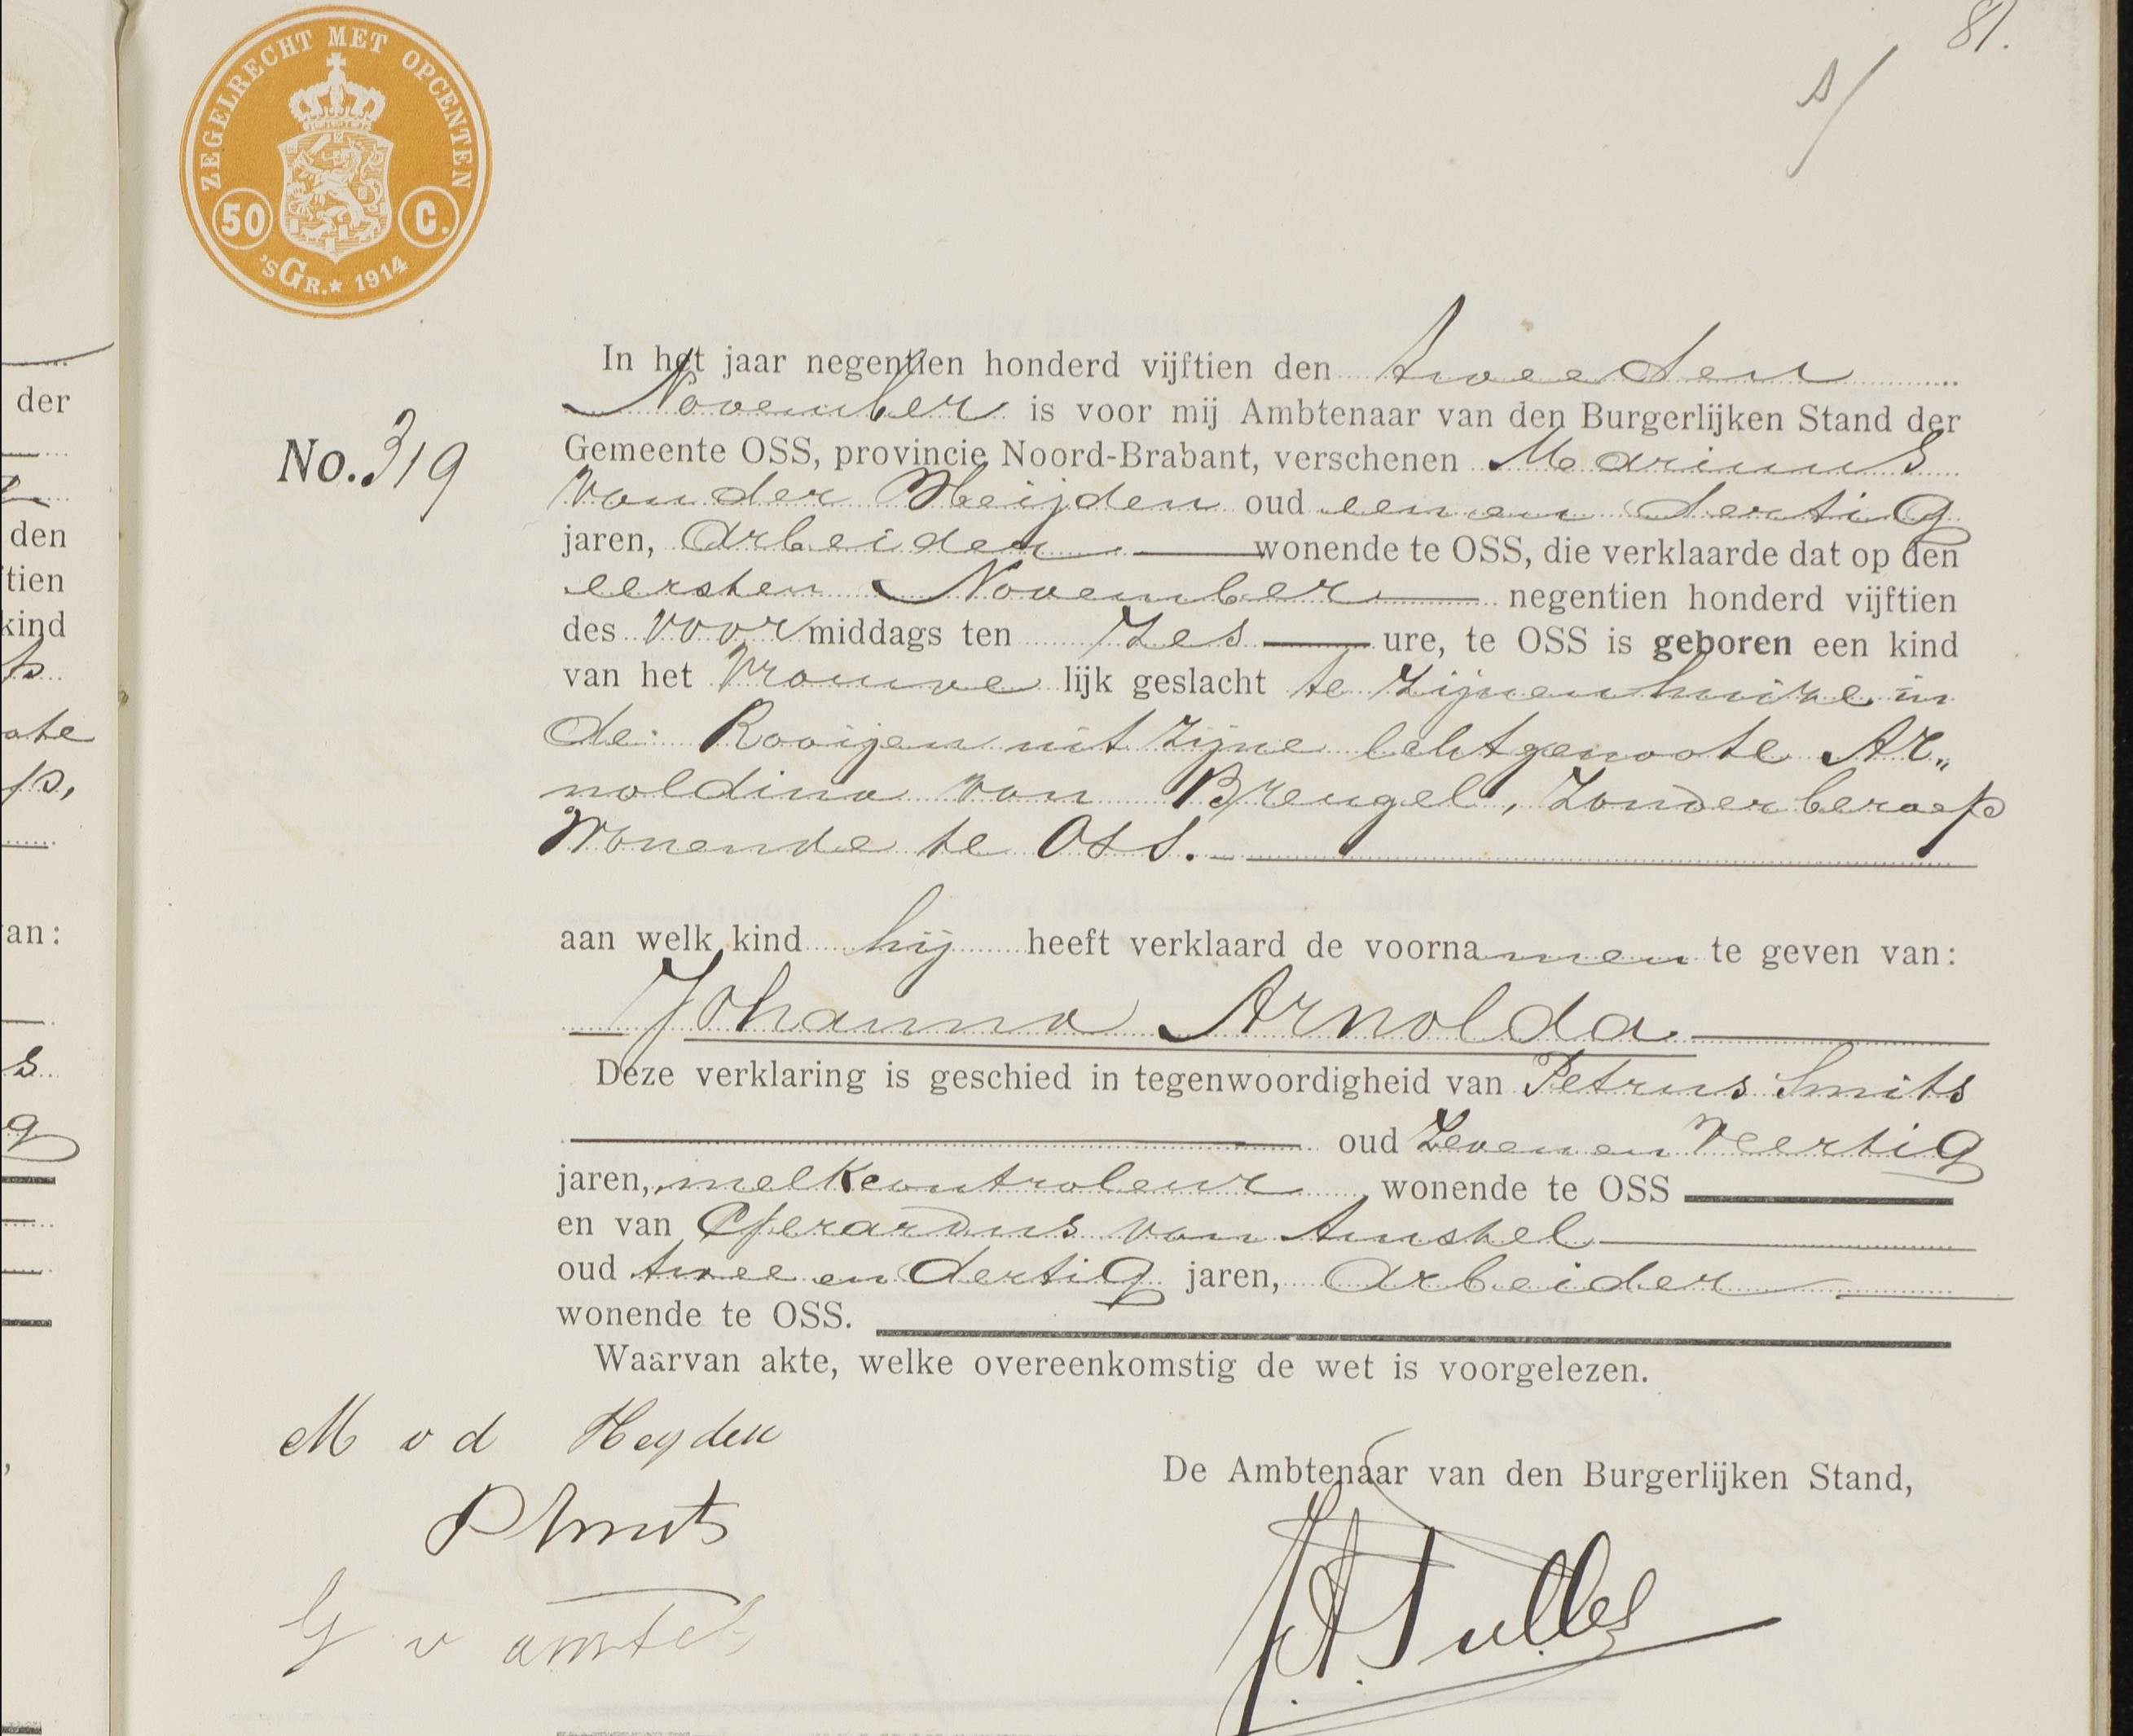 81.
ZEGELRECHT MET OPCENTEN
50 C.
'S GR.* 1914
In het jaar negentien honderd vijftien den tweeden
November is voor mij Ambtenaar van den Burgerlijken Stand der
No. 319
Gemeente OSS, provincie Noord-Brabant, verschenen Marinus
van der Heijden oud een en dertig
jaren, Arbeider wonende te OSS, die verklaarde dat op den
eersten November negentien honderd vijftien
des voor middags ten zes ure, te OSS is geboren een kind
van het vrouwe lijk geslacht te zijnen huize in
de Rooijen uit zijne echtgenoote Ar„
noldina van Breugel, zonder beroep
wonende te Oss.
aan welk kind hij heeft verklaard de voornamen te geven van:
Johanna Arnolda
Deze verklaring is geschied in tegenwoordigheid van Petrus Smits
oud zeven en veertig
jaren, melkcontroleur wonende te OSS
en van Gerardus van Amstel
oud twee en dertig jaren, arbeider
wonende te OSS.
Waarvan akte, welke overeenkomstig de wet is voorgelezen.
M v d Heyden
De Ambtenaar van den Burgerlijken Stand,
P Smits
G v amstel
der
den
tien
kind
an: